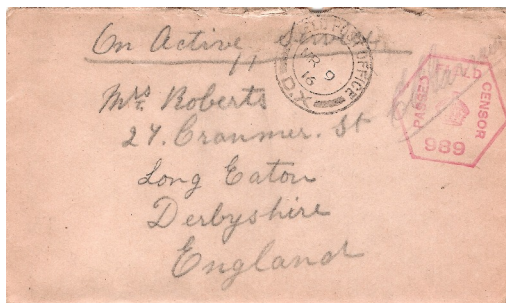 On Active Service
FIELD POST OFFICE
9
16
D.X.
PASSED
CENSOR
989
Mrs Roberts
27. Cranmer. St
Long Eaton
Derbyshire
England